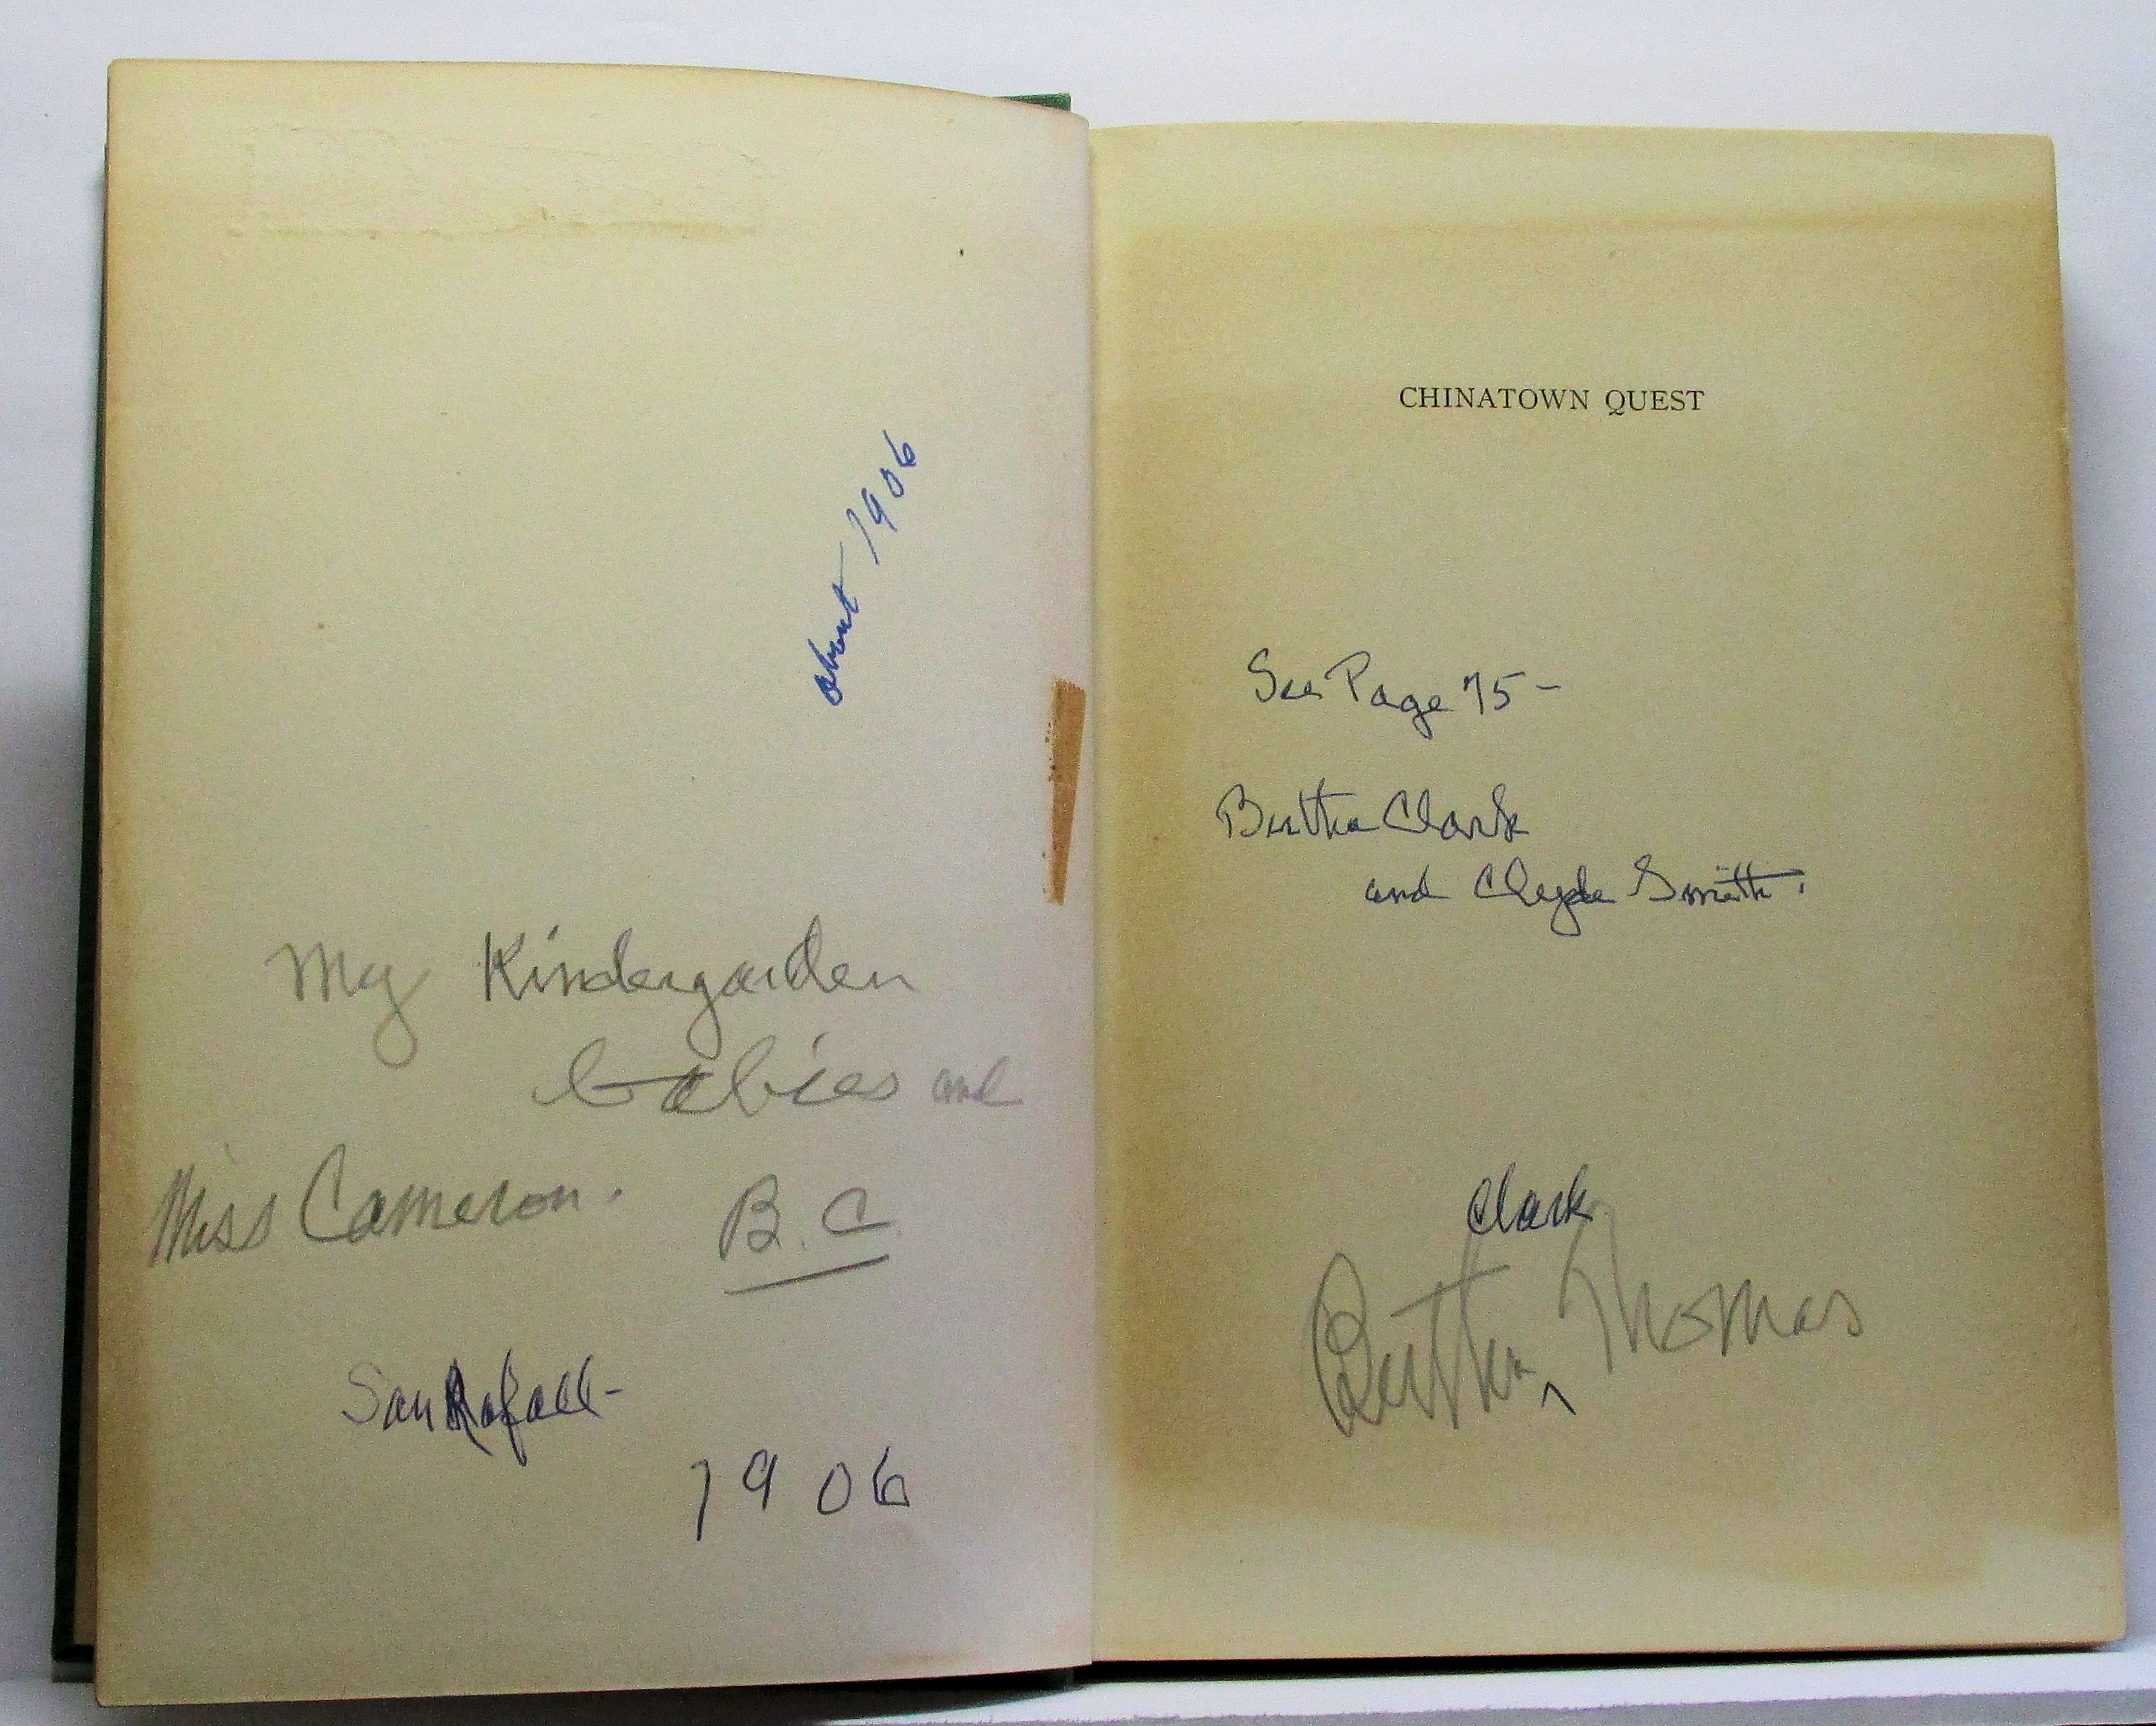 about 1906
My Kindergarden
babies and
Miss Cameron. B.C.
San Rafael-
1906
CHINATOWN QUEST
See Page 75-
Bertha Clark
and Clyde Smith.
Clark
Bertha ^ Thomas